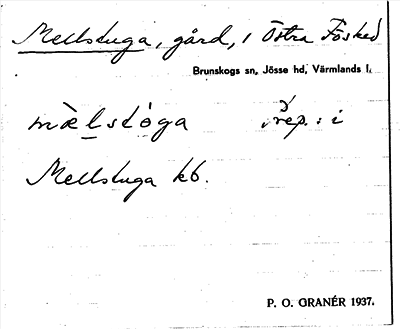 Mellstuga, gård, i Östra Fösked
Brunskogs sn, Jösse hd, Värmlands l.
mæ̀lstóga prep.: i
Mellstuga kb.
P. O. GRANÉR 1937.